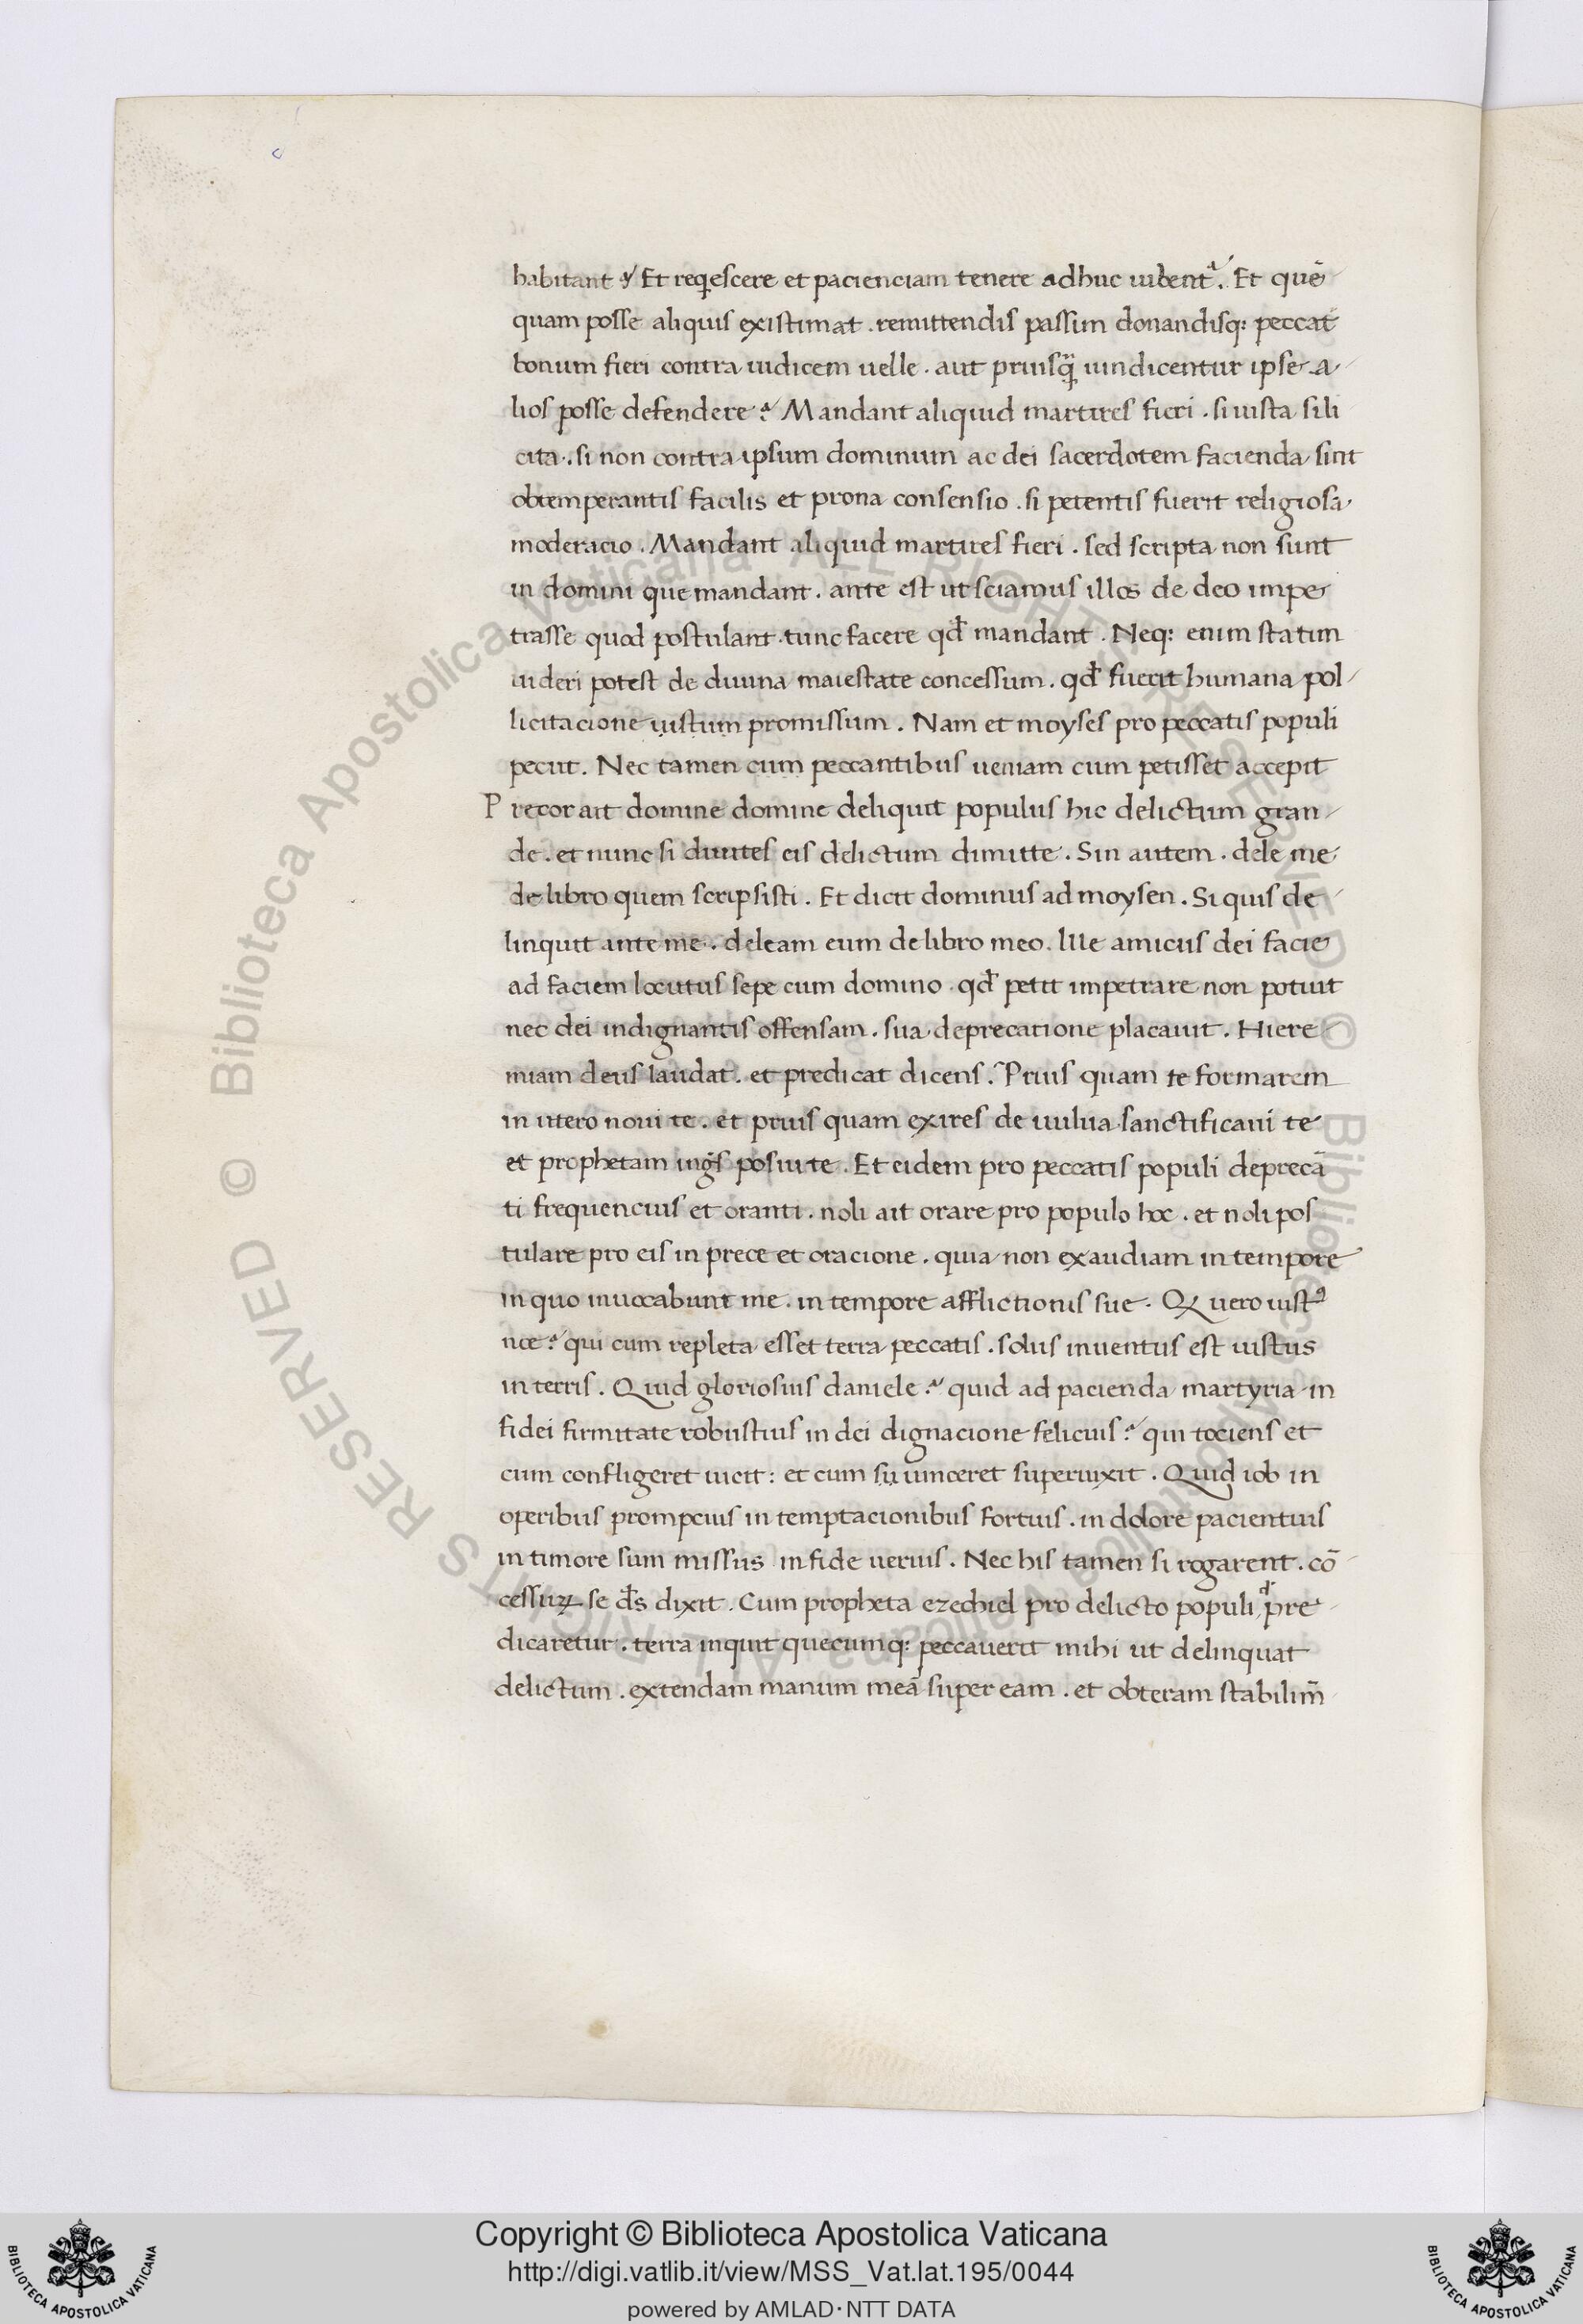 habitant ? Et reqescere et pacienciam tenere adhuc iubent̉. Et quē
quam posse aliquis existimat . remittendis passim donandisq: peccat̄
bonum fieri contra iudicem uelle . aut priusq̄ uindicentur ipse a
lios posse defendere ? Mandant aliquid martires fieri . si iusta si li
cita . si non contra ipsum dominum ac dei sacerdotem facienda sint
obtemperantis facilis et prona consensio . si petentis fuerit religiosa
moderacio . Mandant aliquid martires fieri . sed scripta non sunt
in domini que mandant . ante est ut sciamus illos de deo impe
trasse quod postulant . tunc facere qđ mandant . Neq: enim statim
uideri potest de diuina maiestate concessum . qđ fuerit humana pol
licitacione iustum promissum . Nam et moyses pro peccatis populi
peciit . Nec tamen cum peccantibus ueniam cum petisset accepit
Precor ait domine domine deliquit populus hic delictum gran
de . et nunc si dimittes eis delictum dimitte . Sin autem . dele me
de libro quem scripsisti . Et dicit dominus ad moysen . Si quis de
linquit ante me . deleam eum de libro meo . Ille amicus dei facie
ad faciem locutus sepe cum domino . qđ petit impetrare non potuit
nec dei indignantis offensam . sua deprecatione placauit . Hiere
miam deus laudat . et predicat dicens . Prius quam te formarem
in utero noui te . et prius quam exires de uulua sanctificaui te
et prophetam in g̃s posui te . Et eidem pro peccatis populi deprecā
ti frequencius et oranti . noli ait orare pro populo hoc . et noli pos
tulare pro eis in prece et oracione . quia non exaudiam in tempore
in quo inuocabunt me . in tempore afflictionis sue . Q uero iustꝰ
noe ? qui cum repleta esset terra peccatis . solus inuentus est iustus
in terris . Quid gloriosius daniele ? quid ad pacienda martyria in
fidei firmitate robustius in dei dignacione felicius ? qui tociens et
cum confligeret uicit : et cum su uinceret superuixit . Quid iob in
operibus prompcius in temptacionibus fortius . in dolore pacientius
in timore sum missus in fide uerius . Nec his tamen si rogarent . cō
cessuꝝ se đs dixit . Cum propheta ezechiel pro delicto populi pre
dicaretur . terra inquit quecumq: peccauerit mihi ut delinquat
delictum . extendam manum meā super eam . et obteram stabilim̄
Copyright © Biblioteca Apostolica Vaticana
http://digi.vatlib.it/view/MSS_Vat.lat.195/0044
powered by AMLAD·NTT DATA
BIBLIOTECA APOSTOLICA VATICANA
BIBLIOTECA APOSTOLICA VATICANA
© Biblioteca Apostolica Vaticana ALL RIGHTS RESERVED © Biblioteca Apostolica Vaticana ALL RIGHTS RESERVED